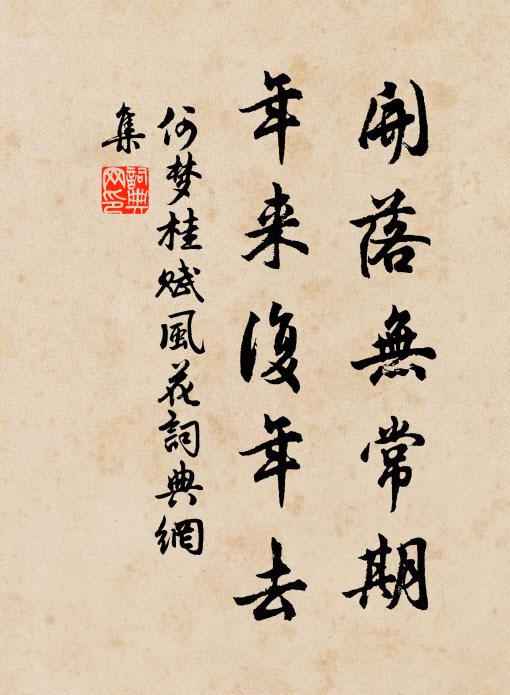 開落無常期
年来復年去
何梦桂賦風花詞典網
集
詞典
网印